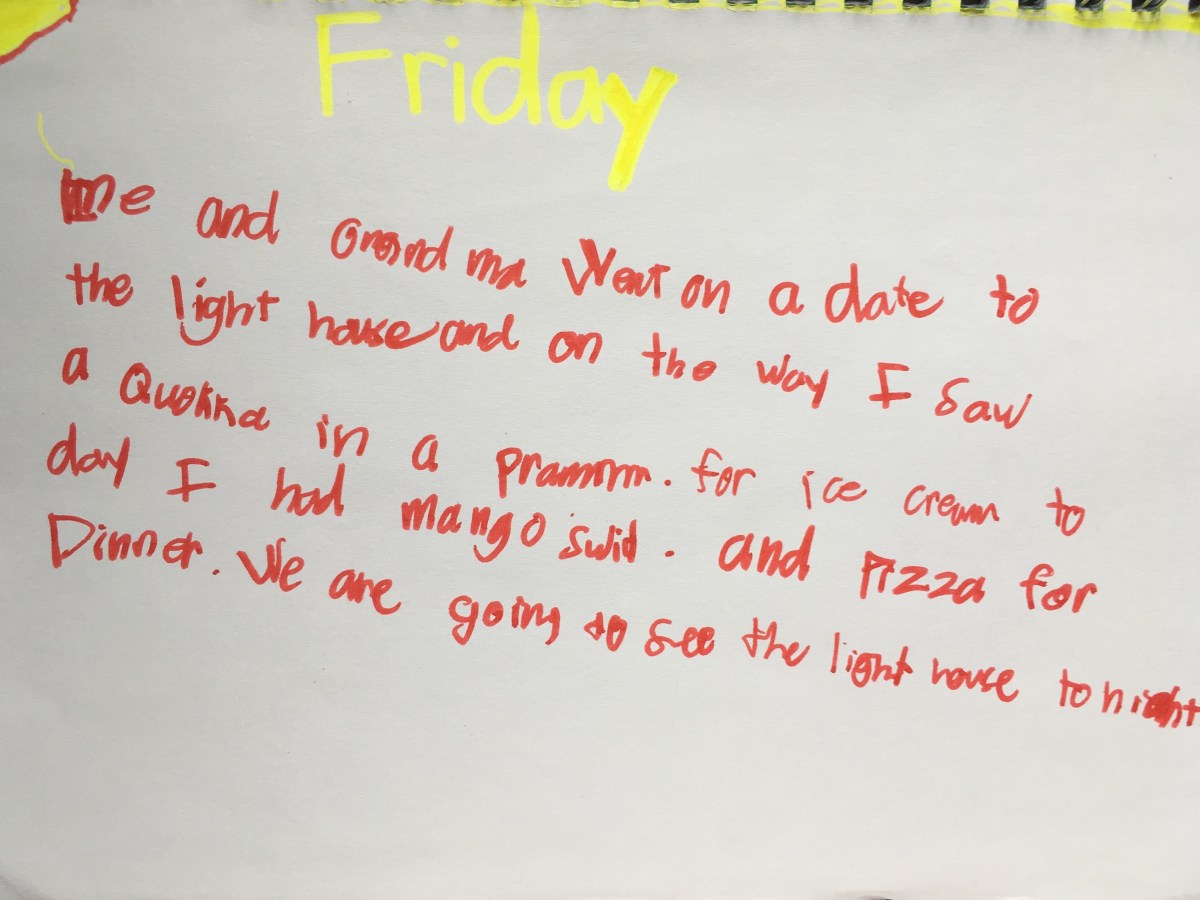 Friday
me and Grand ma Went on a date to
the light house and on the way I saw
a Quokka in a prammm. for ice cream to
day I had mango swid. and Pizza for
Dinner. We are going to see the light house to night